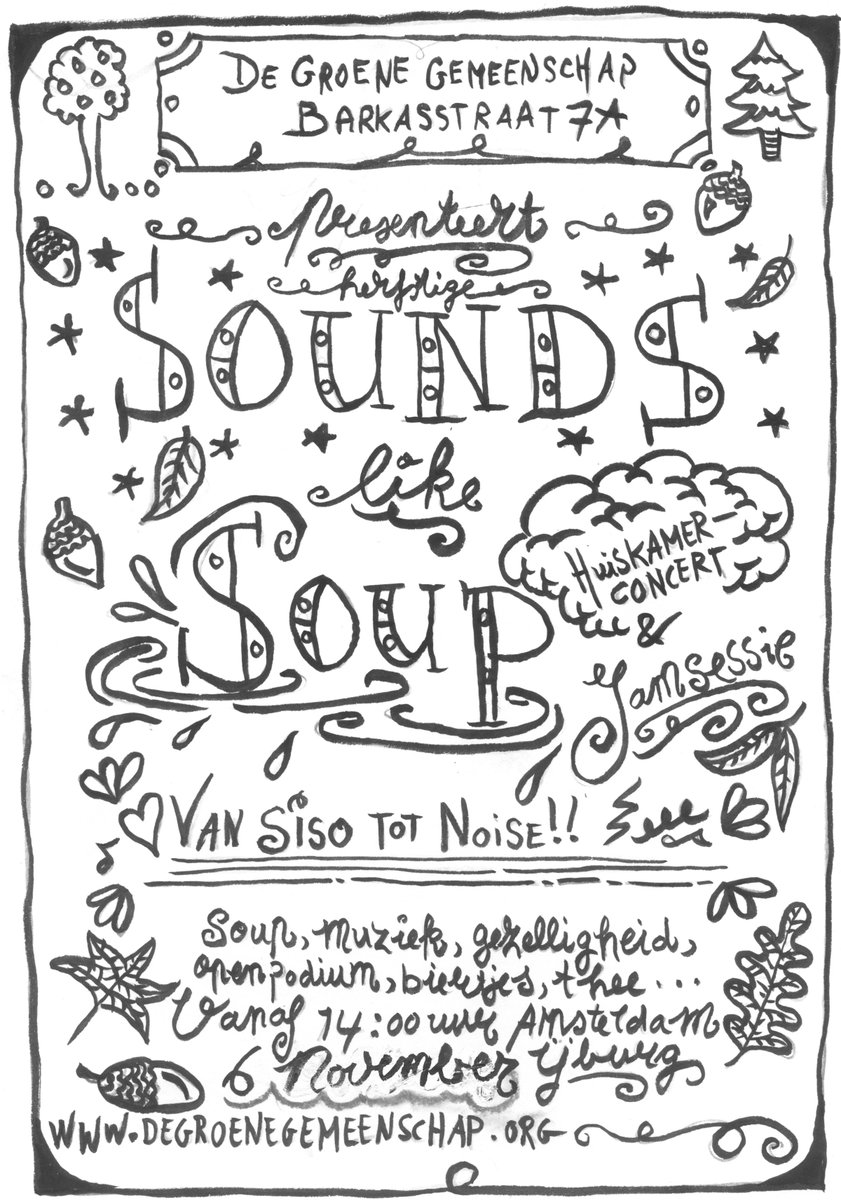 DE GROENE GEMEENSCHAP
BARKASSTRAAT 7A
presenteert
herfstige
SOUNDS
like
SOUP
HUISKAMER-
CONCERT
&
Jamsessie
VAN SISO TOT NOISE!!
Soup, muziek, gezelligheid,
openpodium, biertjes, thee...
Vanaf 14:00 uur AMSTELDAM
6 November ijburg
WWW.DEGROENEGEMEENSCHAP.ORG